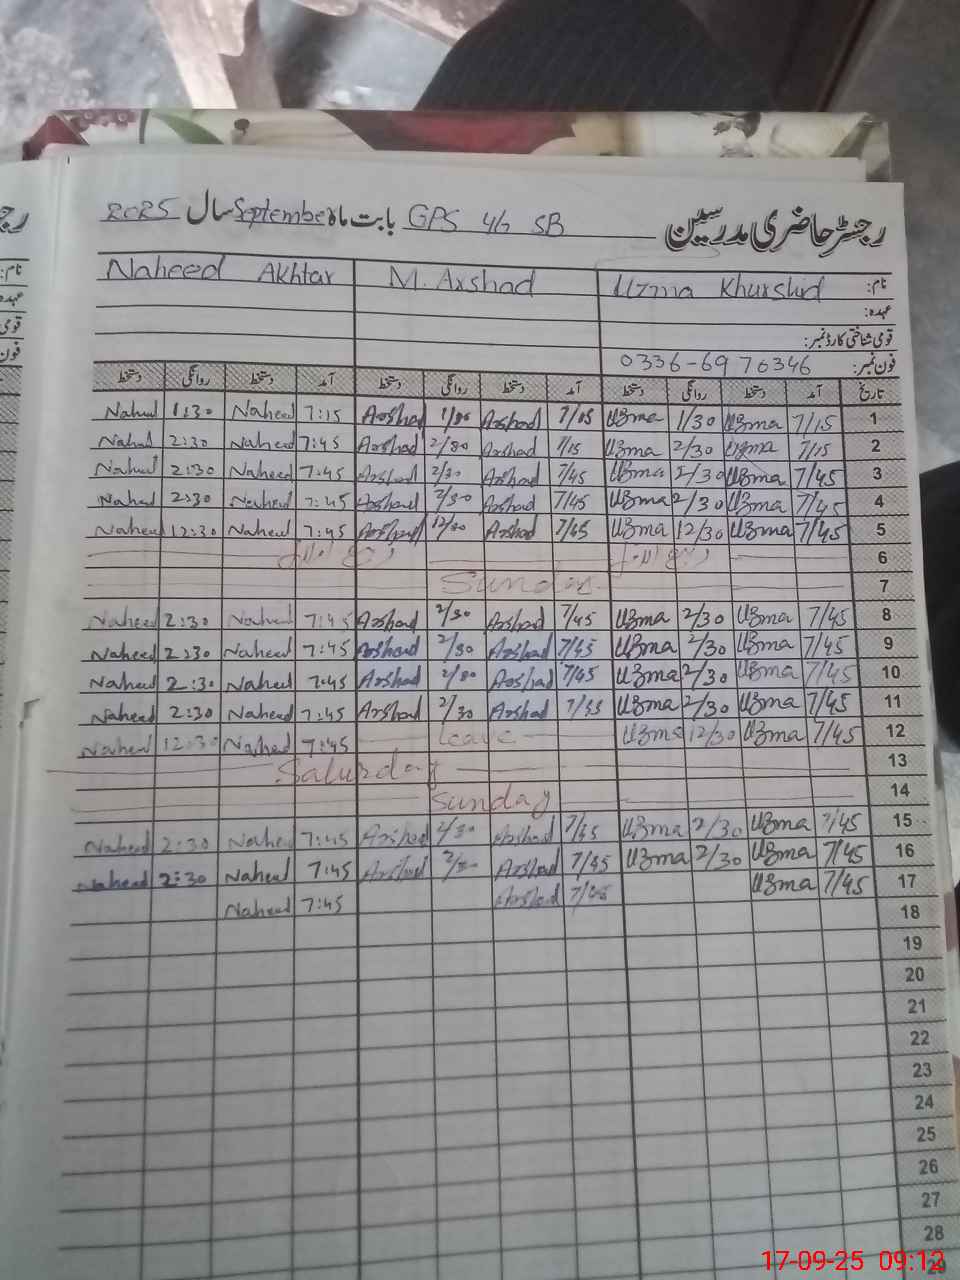 رجسٹر حاضری مدرسین GPS 4/G SB بابت ماہ September سال 2025
نام: Uzma Khurshid M. Arshad Naheed Akhtar
عہدہ:
قومی شناختی کارڈ نمبر:
فون نمبر: 0336-6970346
تاریخ آمد دستخط روانگی دستخط آمد دستخط روانگی دستخط آمد دستخط روانگی دستخط
1 7/15 Uzma 1/30 Uzma 7/15 Arshad 1/30 Arshad 7:15 Naheed 1:30 Naheed
2 7/15 Uzma 2/30 Uzma 7/15 Arshad 2/30 Arshad 7:45 Naheed 2:30 Naheed
3 7/45 Uzma 2/30 Uzma 7/45 Arshad 2/30 Arshad 7:45 Naheed 2:30 Naheed
4 7/45 Uzma 2/30 Uzma 7/45 Arshad 2/30 Arshad 7:45 Naheed 2:30 Naheed
5 7/45 Uzma 12/30 Uzma 7/45 Arshad 12/30 Arshad 7:45 Naheed 12:30 Naheed
6 ربیع الاول ربیع الاول
7 Sunday
8 7/45 Uzma 2/30 Uzma 7/45 Arshad 2/30 Arshad 7:45 Naheed 2:30 Naheed
9 7/45 Uzma 2/30 Uzma 7/45 Arshad 2/30 Arshad 7:45 Naheed 2:30 Naheed
10 7/45 Uzma 2/30 Uzma 7/45 Arshad 2/30 Arshad 7:45 Naheed 2:30 Naheed
11 7/45 Uzma 2/30 Uzma 7/45 Arshad 2/30 Arshad 7:45 Naheed 2:30 Naheed
12 7/45 Uzma 12/30 Uzma Leave 7:45 Naheed 12:30 Naheed
13 Saturday
14 Sunday
15 7/45 Uzma 2/30 Uzma 7/45 Arshad 2/30 Arshad 7:45 Naheed 2:30 Naheed
16 7/45 Uzma 2/30 Uzma 7/45 Arshad 2/30 Arshad 7:45 Naheed 2:30 Naheed
17 7/45 Uzma 7/45 Arshad 7:45 Naheed
18
19
20
21
22
23
24
25
26
27
28
29
17-09-25 09:12